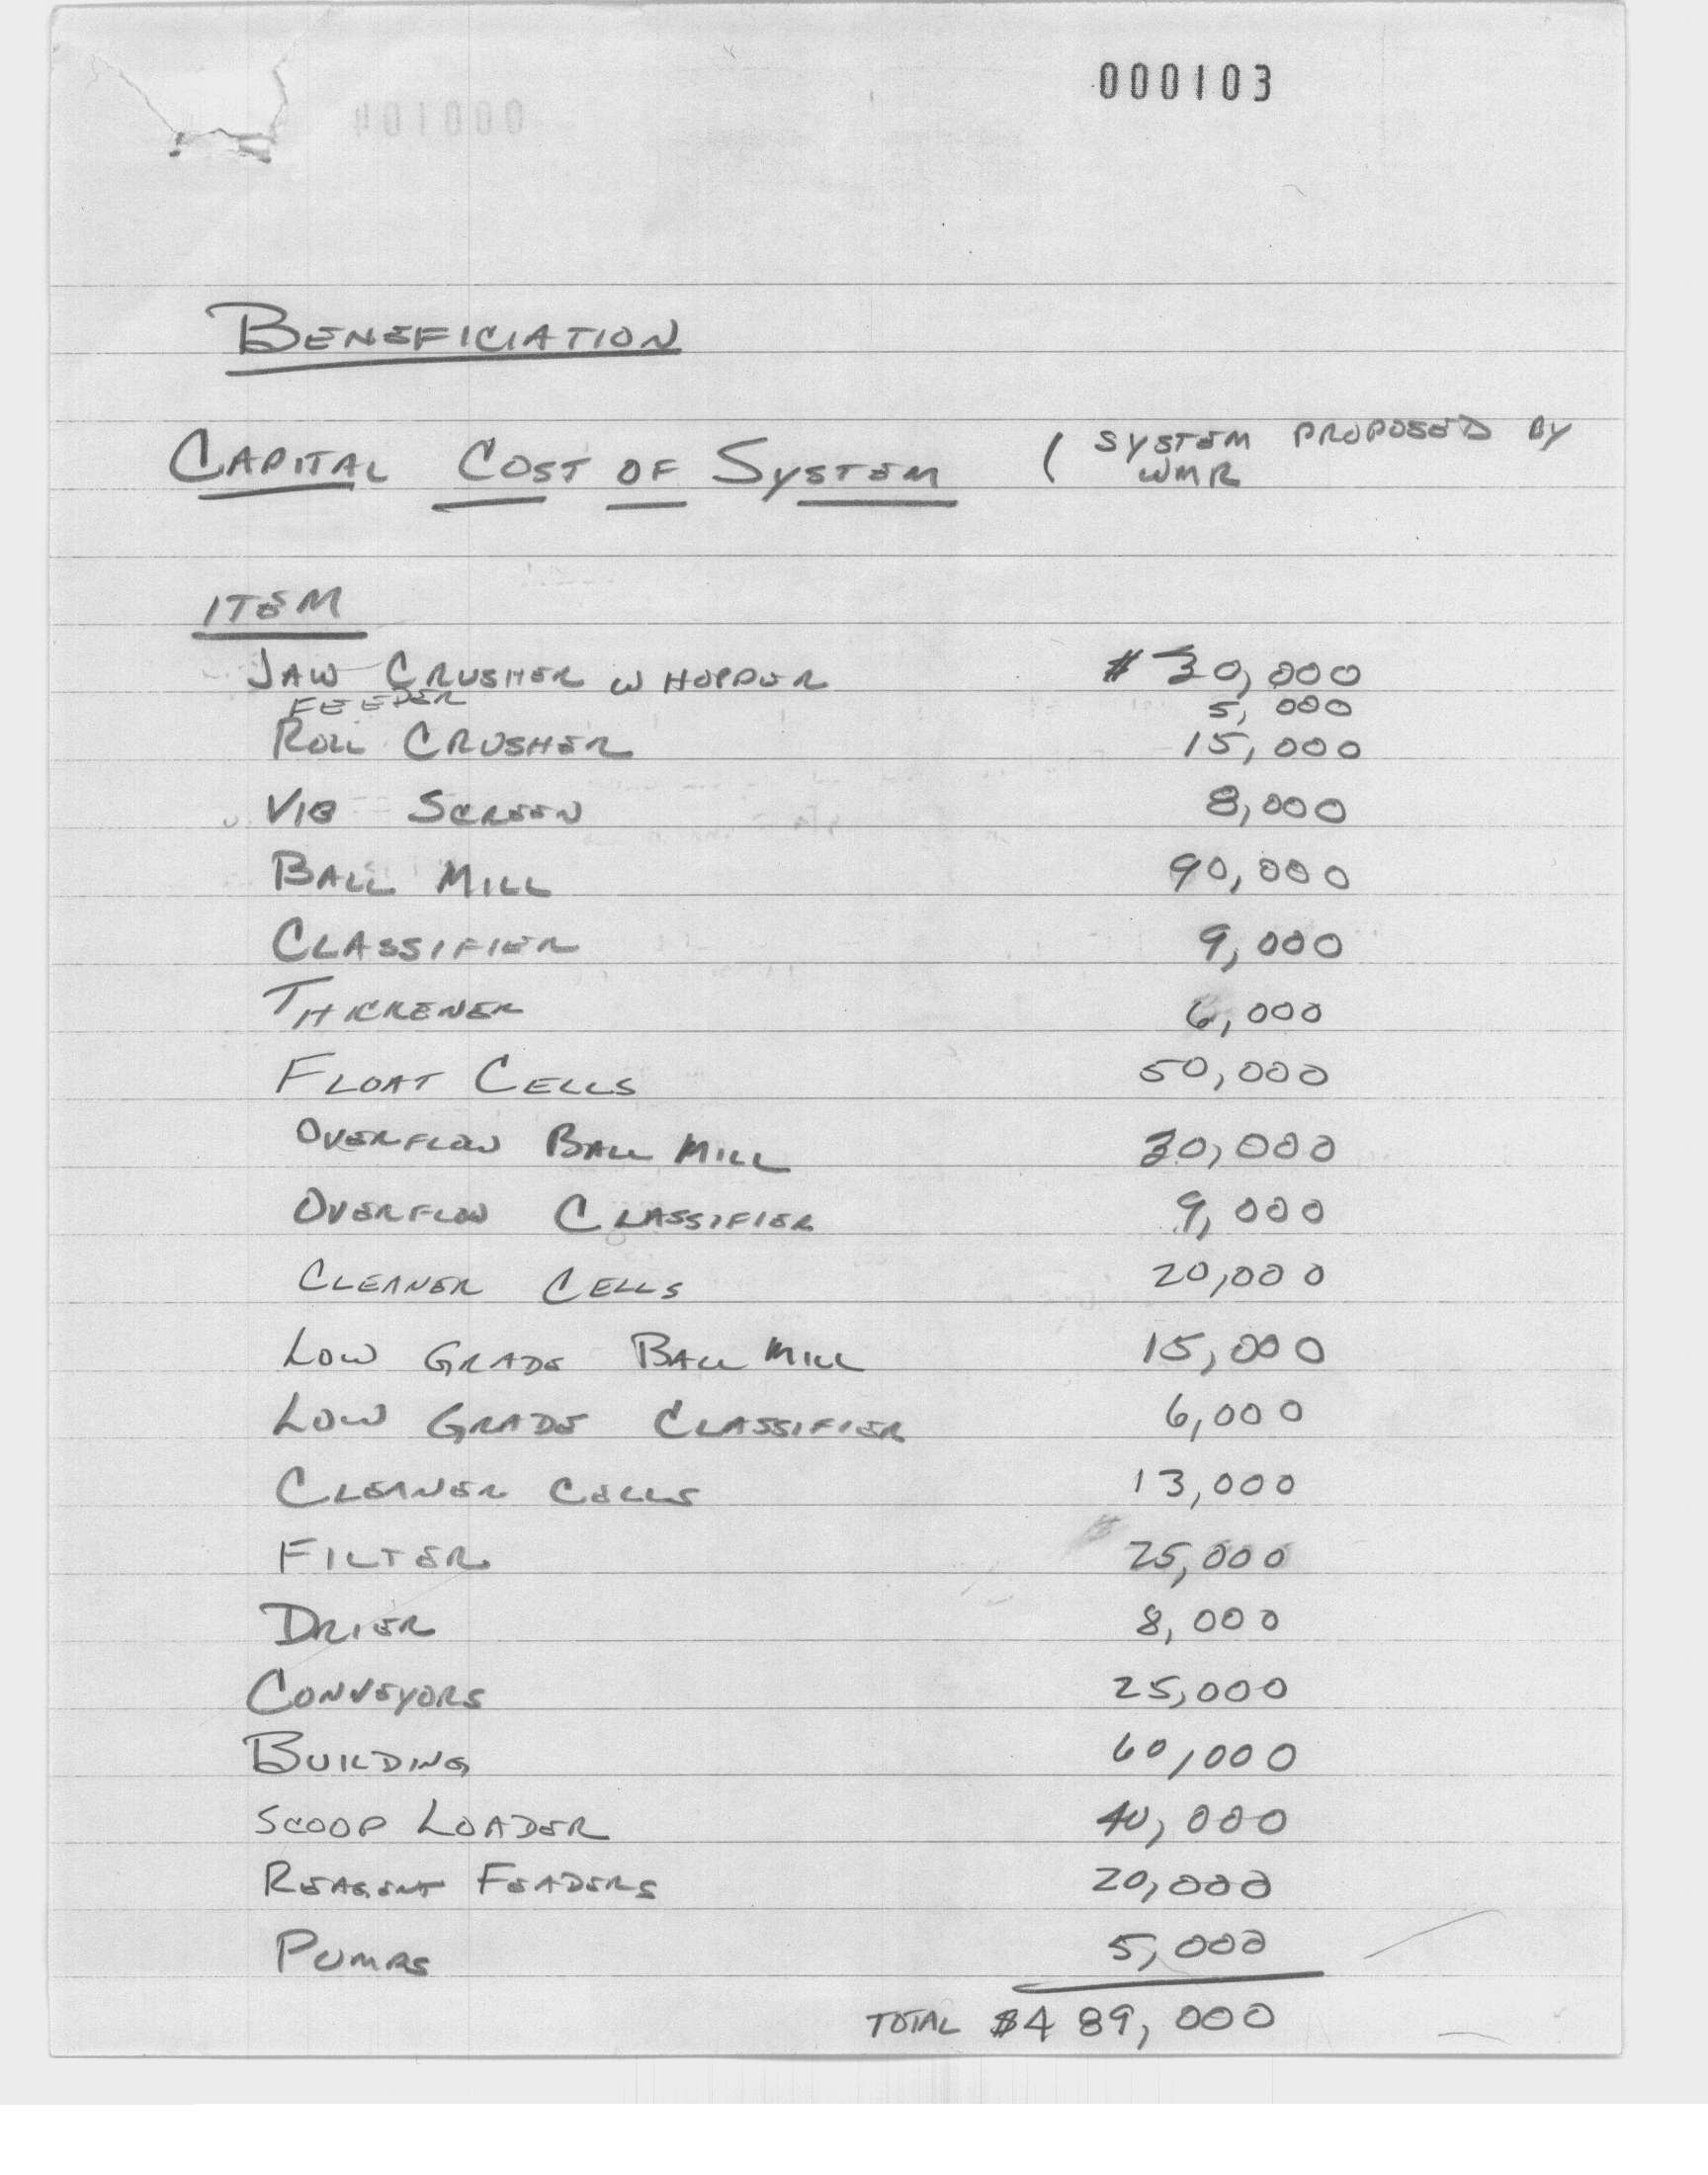 000103
BENEFICIATION
CAPITAL COST OF SYSTEM ( SYSTEM PROPOSED BY
WMR
ITEM
JAW CRUSHER W HOPPER $ 30,000
FEEDER 5,000
ROLL CRUSHER 15,000
VIB SCREEN 8,000
BALL MILL 90,000
CLASSIFIER 9,000
THICKENER 6,000
FLOAT CELLS 50,000
OVERFLOW BALL MILL 30,000
OVERFLOW CLASSIFIER 9,000
CLEANER CELLS 20,000
LOW GRADE BALL MILL 15,000
LOW GRADE CLASSIFIER 6,000
CLEANER CELLS 13,000
FILTER 25,000
DRIER 8,000
CONVEYORS 25,000
BUILDING 60,000
SCOOP LOADER 40,000
REAGENT FEADERS 20,000
PUMPS 5,000
TOTAL $489,000